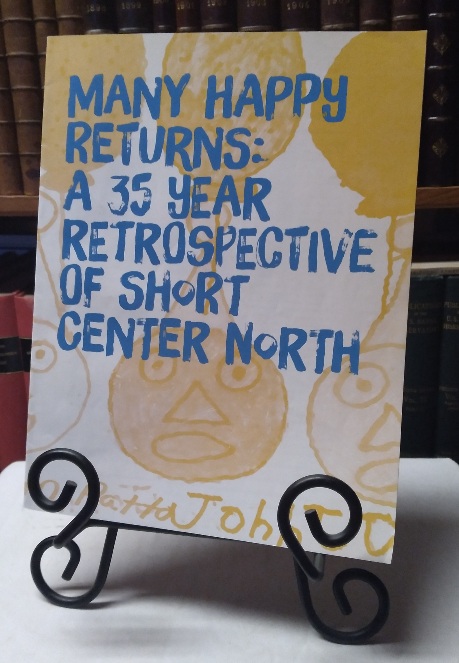 MANY HAPPY
RETURNS:
A 35 YEAR
RETROSPECTIVE
OF SHORT
CENTER NORTH
John